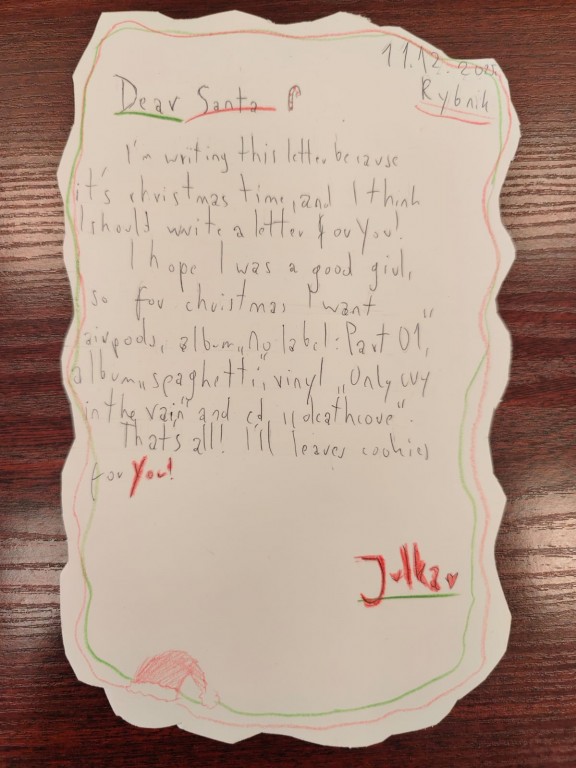 11.12.2025
Rybnik
Dear Santa
I'm writing this letter because
it's christmas time, and I think
I should write a letter for you!
I hope I was a good girl,
so for christmas I want
airpods, album „No label: Part 01",
album „spaghetti", vinyl „Only cry
in the rain" and cd „deathcove".
Thats all! I'll leaves cookies
for You!
Julka